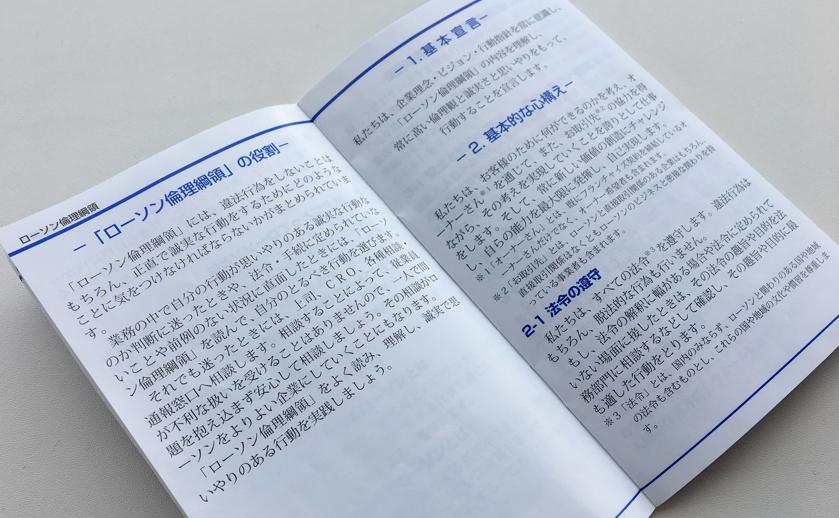 ローソン倫理綱領
－「ローソン倫理綱領」の役割－
「ローソン倫理綱領」には、違法行為をしないことは
もちろん、正直で誠実な行動をするためにどのような
ことに気をつけなければならないかがまとめられていま
す。
業務の中で自分の行動が思いやりのある誠実な行動な
のか判断に迷ったときや、法令・手続に定められていな
いことや前例のない状況に直面したときには、「ローソ
ン倫理綱領」を読んで、自分のとるべき行動を選びます。
それでも迷ったときには、上司、ＣＲＯ、各種相談・
通報窓口へ相談します。相談することによって、従業員
が不利な扱いを受けることはありませんので、一人で問
題を抱え込まず安心して相談しましょう。その相談がロ
ーソンをよりよい企業にしていくことにもなります。
「ローソン倫理綱領」をよく読み、理解し、誠実で思
いやりのある行動を実践しましょう。
－1. 基本宣言－
私たちは、企業理念・ビジョン・行動指針を常に意識し、
「ローソン倫理綱領」の内容を理解し、
常に高い倫理観と誠実さと思いやりをもって、
行動することを宣言します。
－2. 基本的な心構え－
私たちは、お客様のために何ができるのかを考え、オ
ーナーさん※1を通して、また、お取引先※2の協力を得
ながら、その考えを実現していくことを誇りとして仕事
をします。そして、常に新しい価値の創造にチャレンジ
し、自らの能力を最大限に発揮し、自己実現します。
※1「オーナーさん」とは、既にフランチャイズ契約を締結しているオ
ーナーさんだけでなく、オーナー希望者も含まれます。
※2「お取引先」とは、ローソンと直接取引関係のある企業はもちろん、
直接取引関係はなくともローソンのビジネスと密接な関わりを持
っている事業者も含まれます。
2-1 法令の遵守
私たちは、すべての法令※3を遵守します。違法行為は
もちろん、脱法的な行為も行いません。
もし、法令の解釈に幅がある場合や法令に定められて
いない場面に接したときは、その法令の趣旨や目的を法
務部門に相談するなどして確認し、その趣旨や目的に最
も適した行動をとります。
※3「法令」とは、国内のみならず、ローソンと関わりのある国や地域
の法令も含むものとし、これらの国や地域の文化や慣習を尊重しま
す。